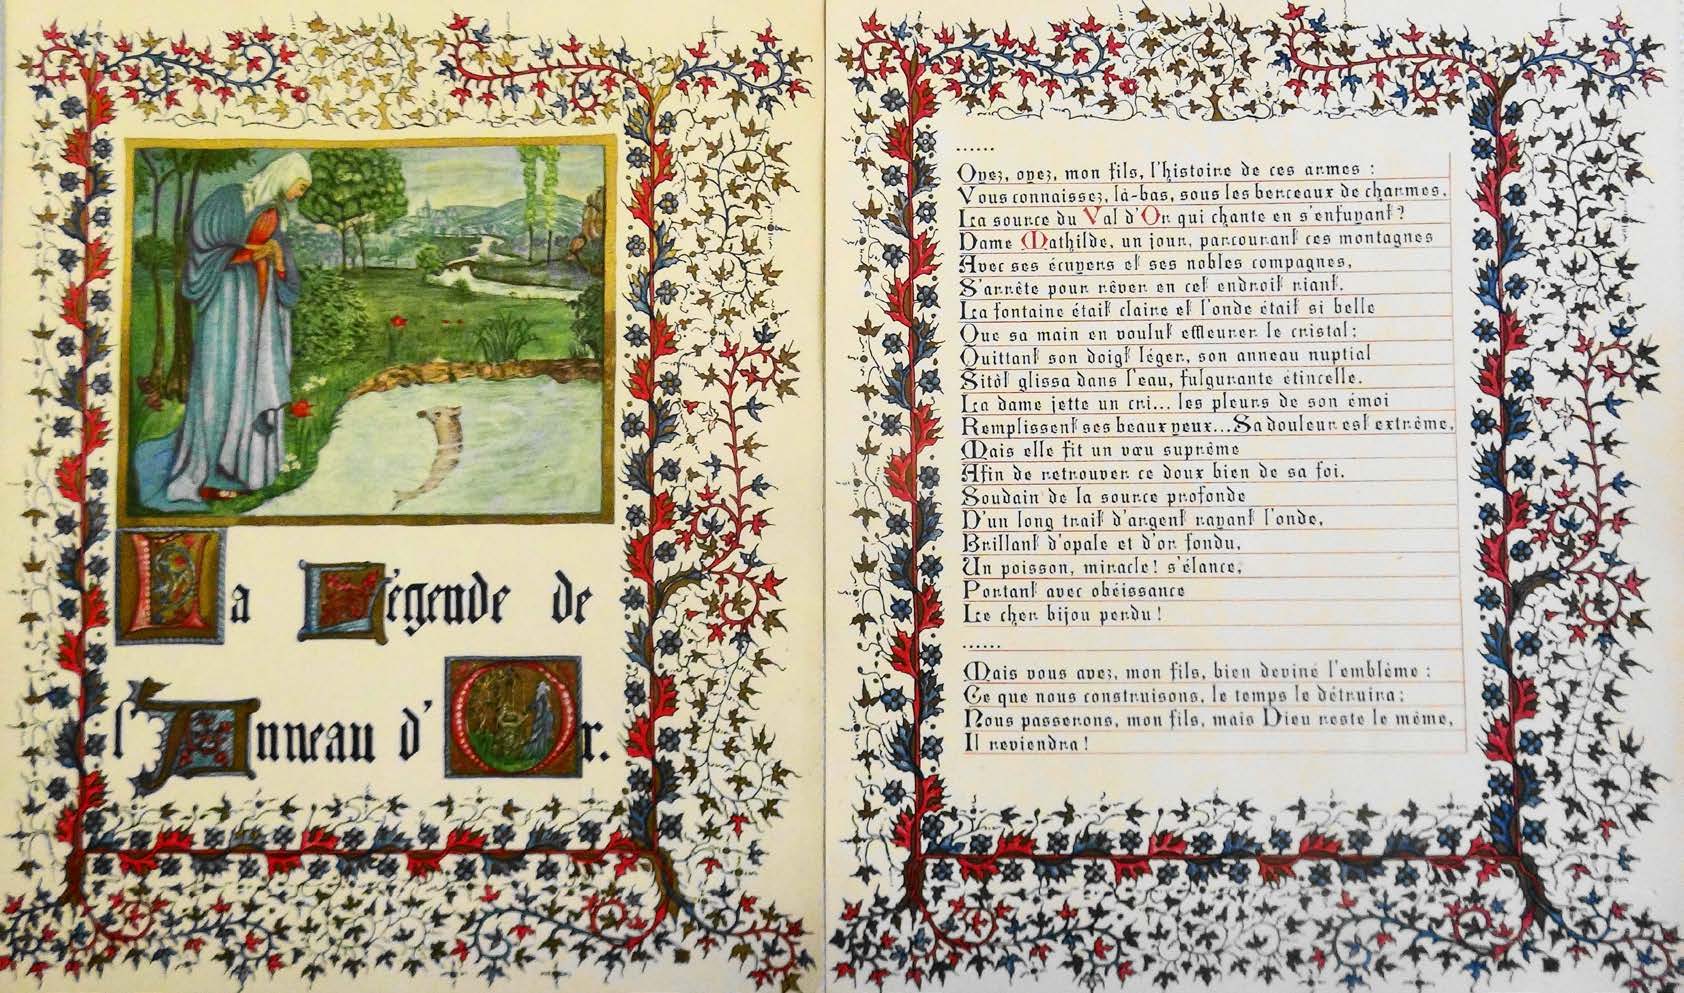 La Légende de
l'Anneau d'Or.
......
Oyez, oyez, mon fils, l'histoire de ces armes :
Vous connaissez, là-bas, sous les berceaux de charmes,
La source du Val d'Or qui chante en s'enfuyant ?
Dame Mathilde, un jour, parcourant ces montagnes
Avec ses écuyers et ses nobles compagnes,
S'arrête pour rêver en cet endroit riant.
La fontaine était claire et l'onde était si belle
Que sa main en voulut effleurer le cristal ;
Quittant son doigt léger, son anneau nuptial
Sitôt glissa dans l'eau, fulgurante étincelle.
La dame jette un cri... les pleurs de son émoi
Remplissent ses beaux yeux... Sa douleur est extrême,
Mais elle fit un vœu suprême
Afin de retrouver ce doux bien de sa foi.
Soudain de la source profonde
D'un long trait d'argent rayant l'onde,
Brillant d'opale et d'or fondu,
Un poisson, miracle ! s'élance,
Portant avec obéissance
Le cher bijou perdu !
......
Mais vous avez, mon fils, bien deviné l'emblème :
Ce que nous construisons, le temps le détruira ;
Nous passerons, mon fils, mais Dieu reste le même,
Il reviendra !